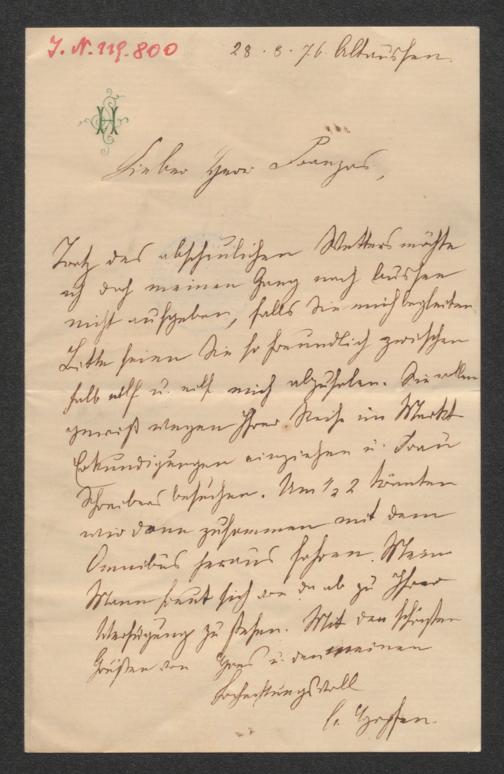 J. N. 119.800
28. 8. 76. Altaussee.
H
Lieber Herr Franzos,
Trotz des abscheulichen Wetters möchte
ich doch meinen Gang nach Aussee
nicht aufgeben, falls Sie mich begleiten.
Bitte seien Sie so freundlich zwischen
halb elf u. elf mich abzuholen. Sie wollen
gewiß wegen Ihrer Reise im Markt
Erkundigungen einziehen u. Frau
Schreibers besuchen. Um ½ 2 könnten
wir dann zusammen mit dem
Omnibus heraus fahren. Mein
Mann freut sich von da ab zu Ihrer
Verfügung zu stehen. Mit den schönsten
Grüßen von Hans u. den meinen
hochachtungsvoll
Hopfen.